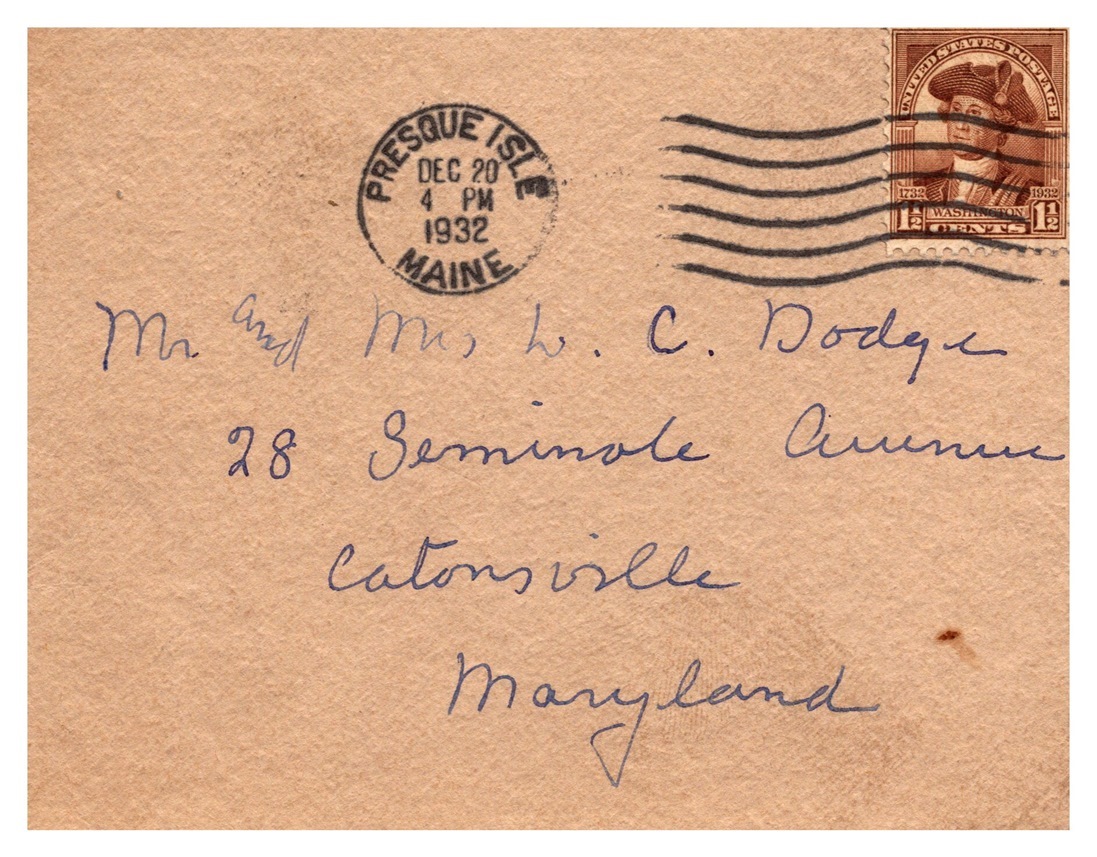 UNITED STATES POSTAGE
1732 1932
1½ WASHINGTON 1½
CENTS
PRESQUE ISLE
DEC 20
4 PM
1932
MAINE
Mr and Mrs W. C. Dodge
28 Seminole Avenue
Catonsville
Maryland